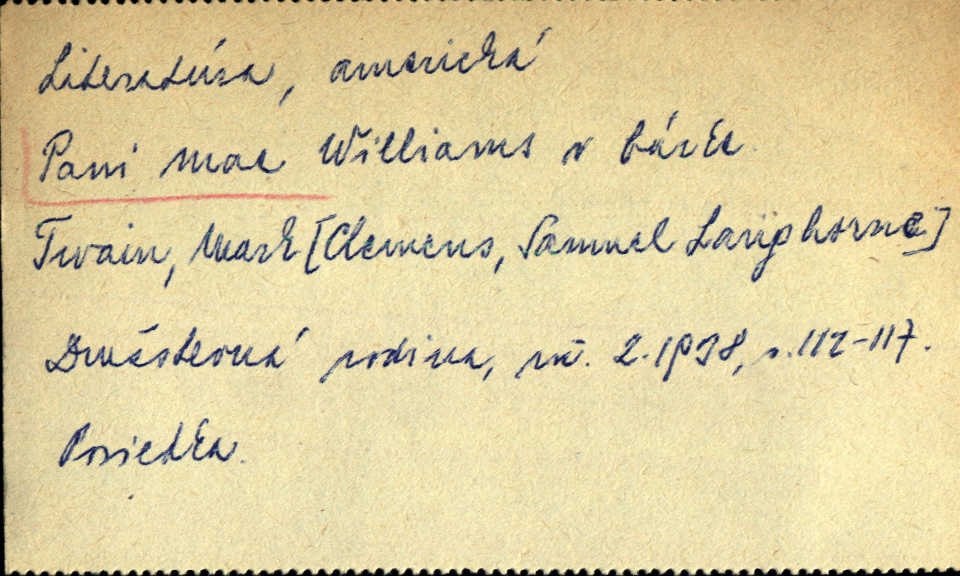 Literatúra, americká
Pani mac Williams v búrke
Twain, Mark [Clemens, Samuel Langhorne]
Družstevná rodina, roč. 2. 1938, s. 112-117.
Poviedka.